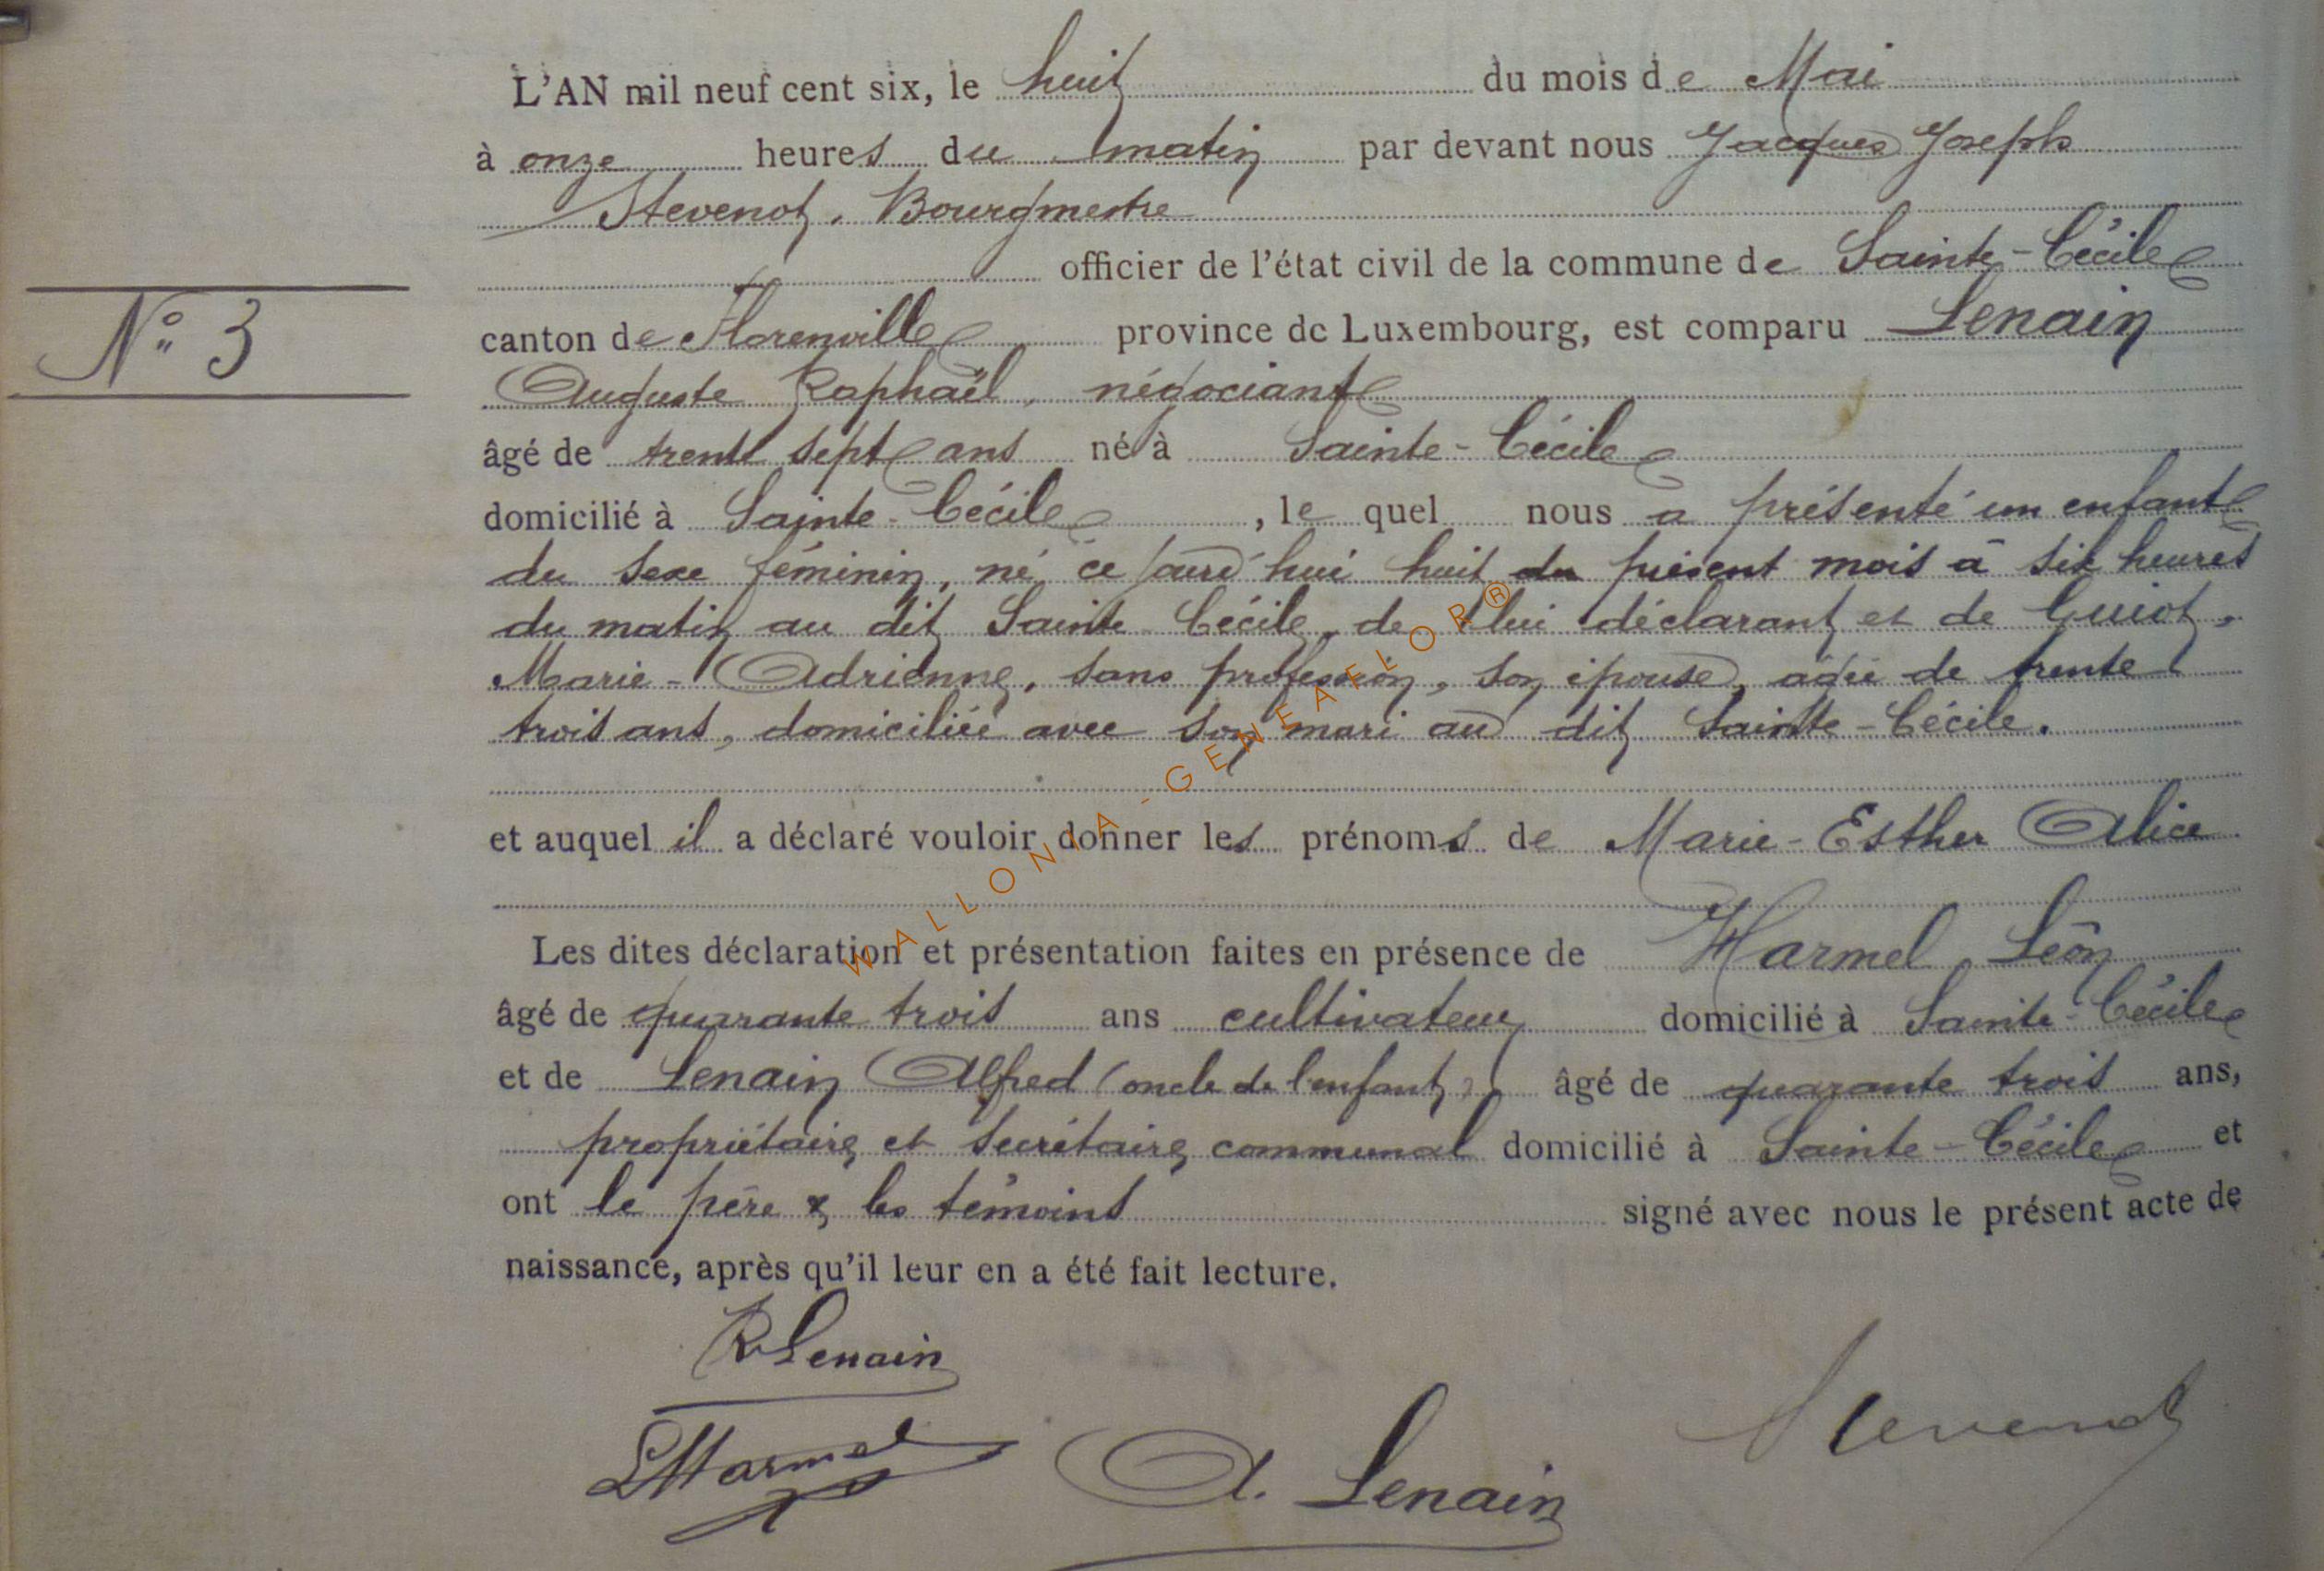 L'AN mil neuf cent six, le huit du mois de Mai
à onze heures du matin par devant nous Jacques Joseph
Stevenot, Bourgmestre
officier de l'état civil de la commune de Sainte-Cécile
N° 3
canton de Florenville province de Luxembourg, est comparu Lenain
Auguste Raphaël, négociant
âgé de trente sept ans né à Sainte-Cécile
domicilié à Sainte-Cécile, le quel nous a présenté un enfant
du sexe féminin, né ce jourd'hui huit du présent mois à six heures
du matin au dit Sainte Cécile, de lui déclarant et de Guiot,
Marie-Adrienne, sans profession, son épouse, âgée de trente
trois ans, domiciliée avec son mari au dit Sainte-Cécile.
et auquel il a déclaré vouloir donner les prénoms de Marie-Esther Alice
Les dites déclaration et présentation faites en présence de Harmel Léon
âgé de quarante trois ans cultivateur domicilié à Sainte-Cécile
et de Lenain Alfred (oncle de l'enfant), âgé de quarante trois ans,
propriétaire et secrétaire communal domicilié à Sainte-Cécile et
ont le père & les témoins signé avec nous le présent acte de
naissance, après qu'il leur en a été fait lecture.
R Lenain
L Harmel
A. Lenain
Stevenot
WALLONIA-GENEAFLOR®